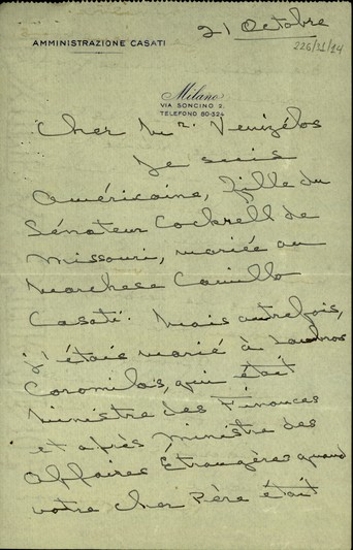 21 Octobre
AMMINISTRAZIONE CASATI
226/31/14
Milano
VIA SONCINO 2.
TELEFONO 80-524
Cher Mr. Venizélos
Je suis
Américaine, fille du
Sénateur Cockrell de
Missouri, mariée au
Marchese Camillo
Casati. Mais autrefois,
j'étais marié à Lambros
Coromilas, qui était
Ministre des Finances
et après Ministre des
Affaires Étrangères quand
votre cher Père était